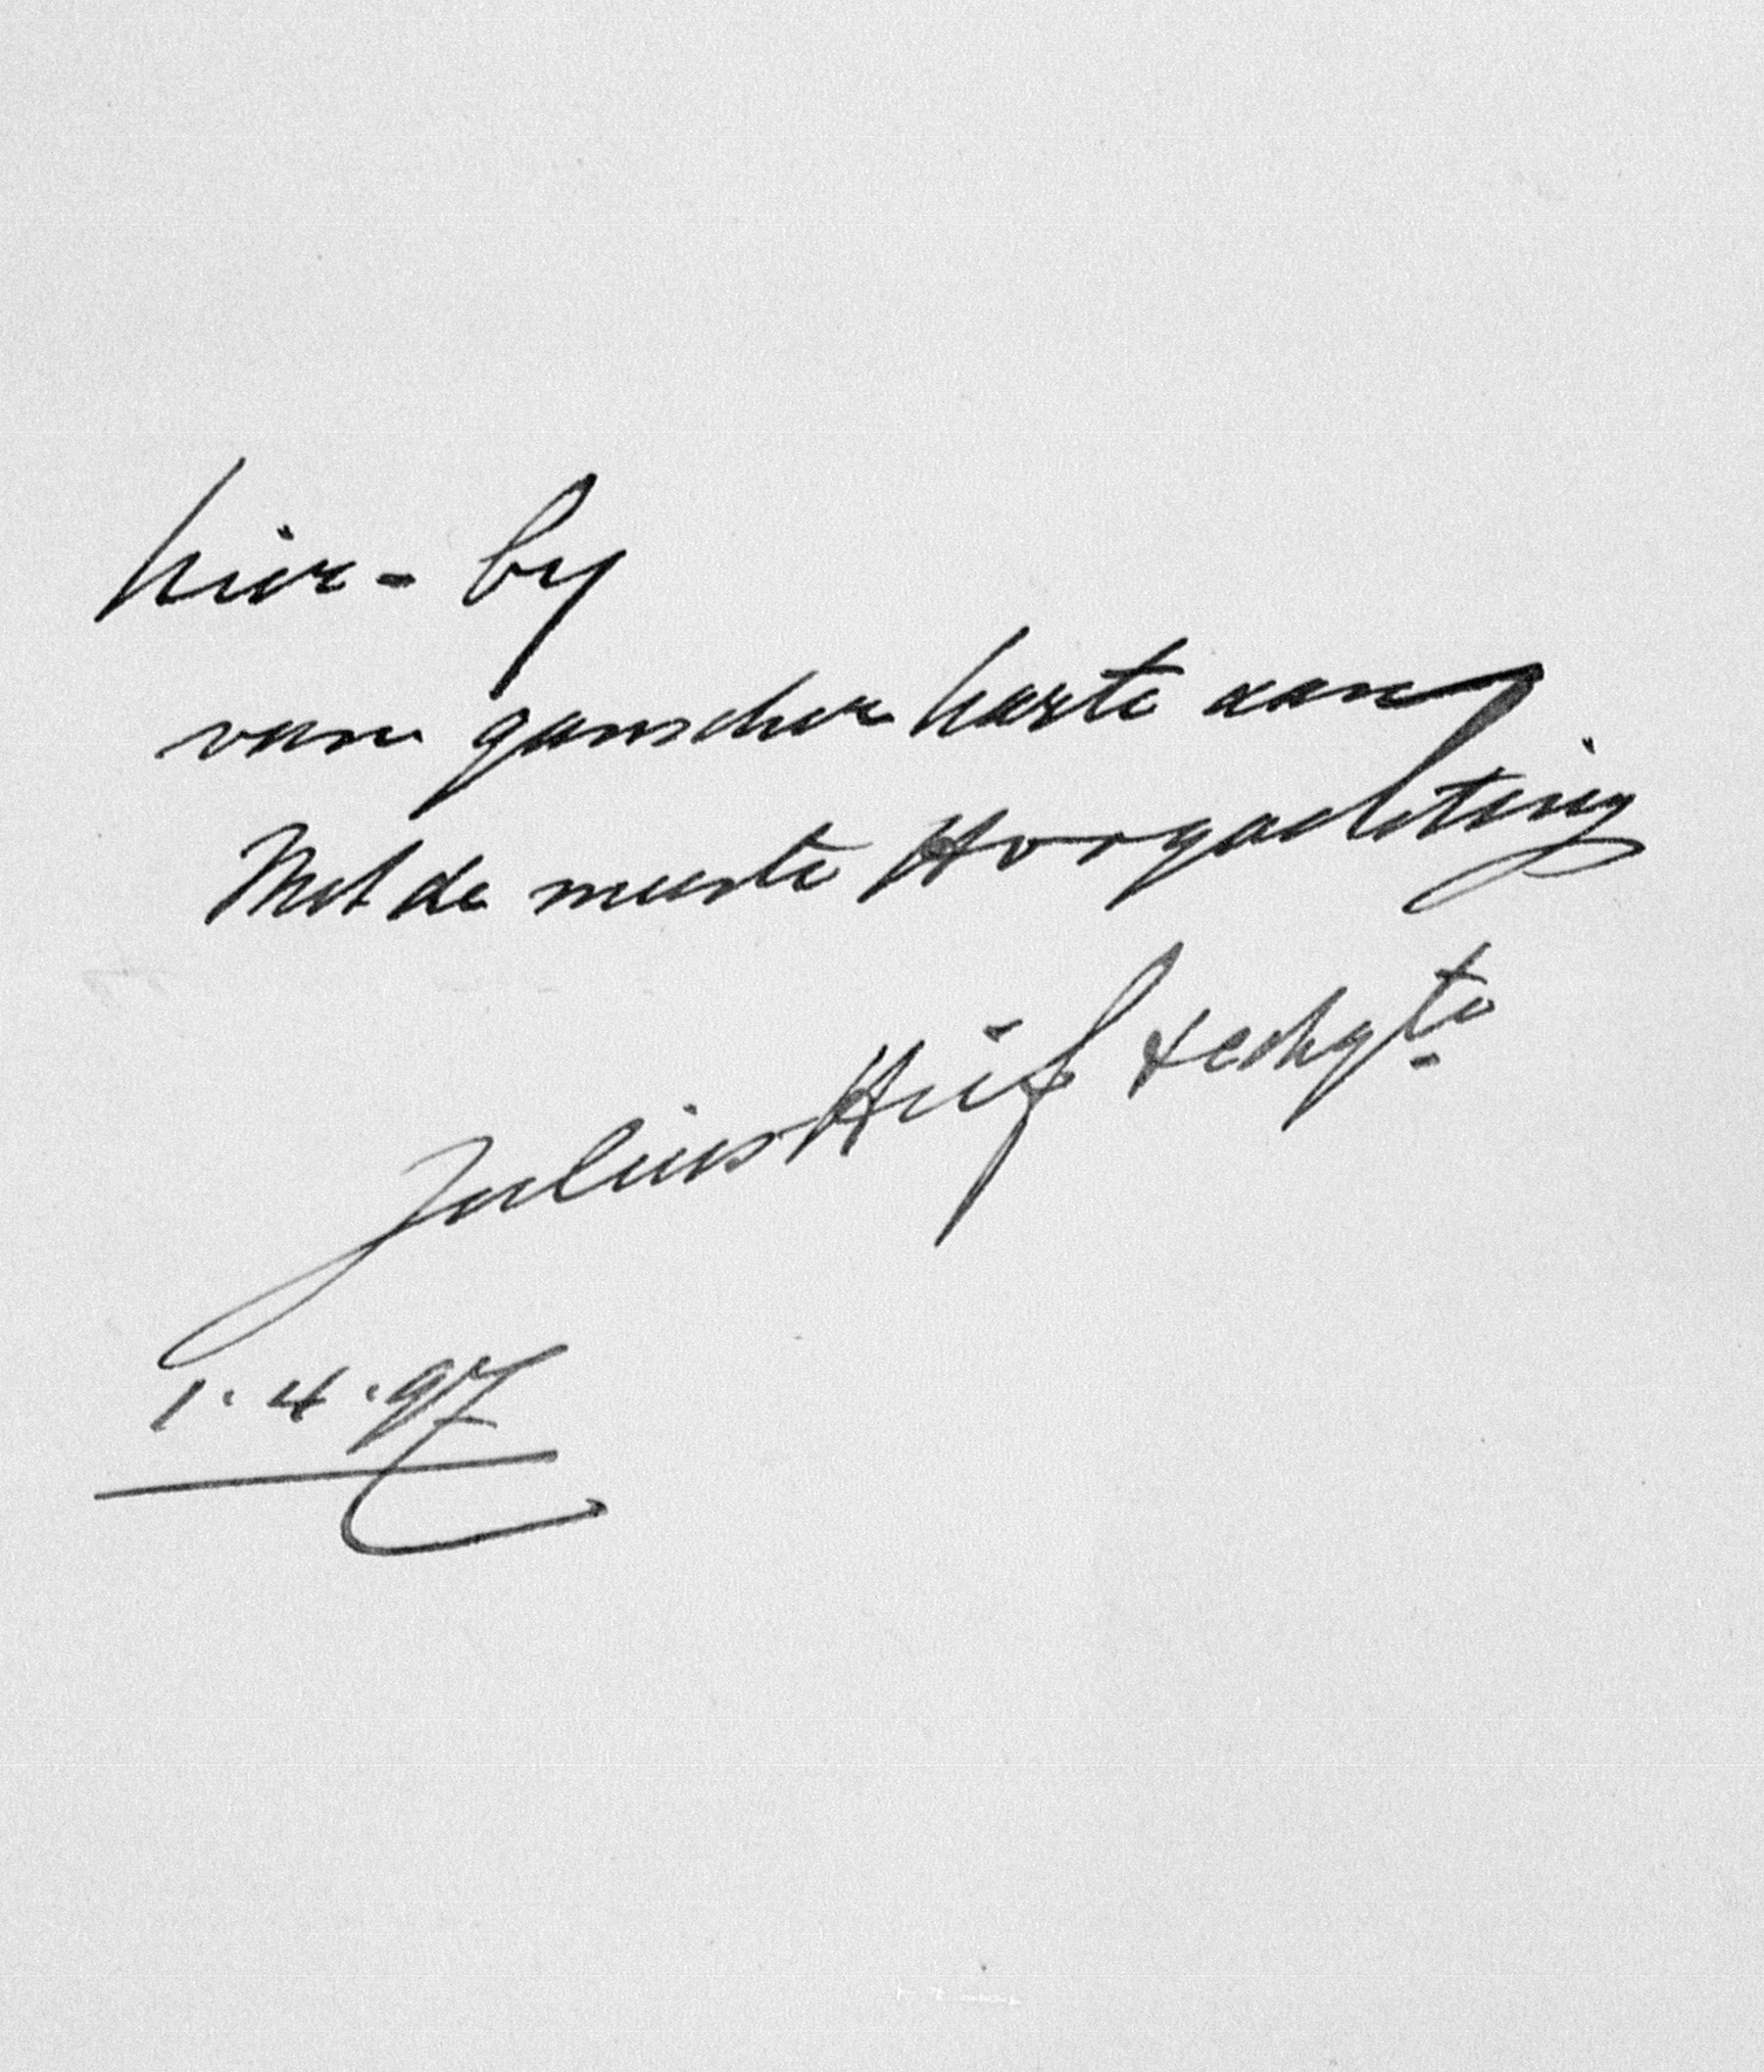 hier - by
van ganscher harte aan
Met de meeste Hoogachting
Julius Hüf
1.4.97